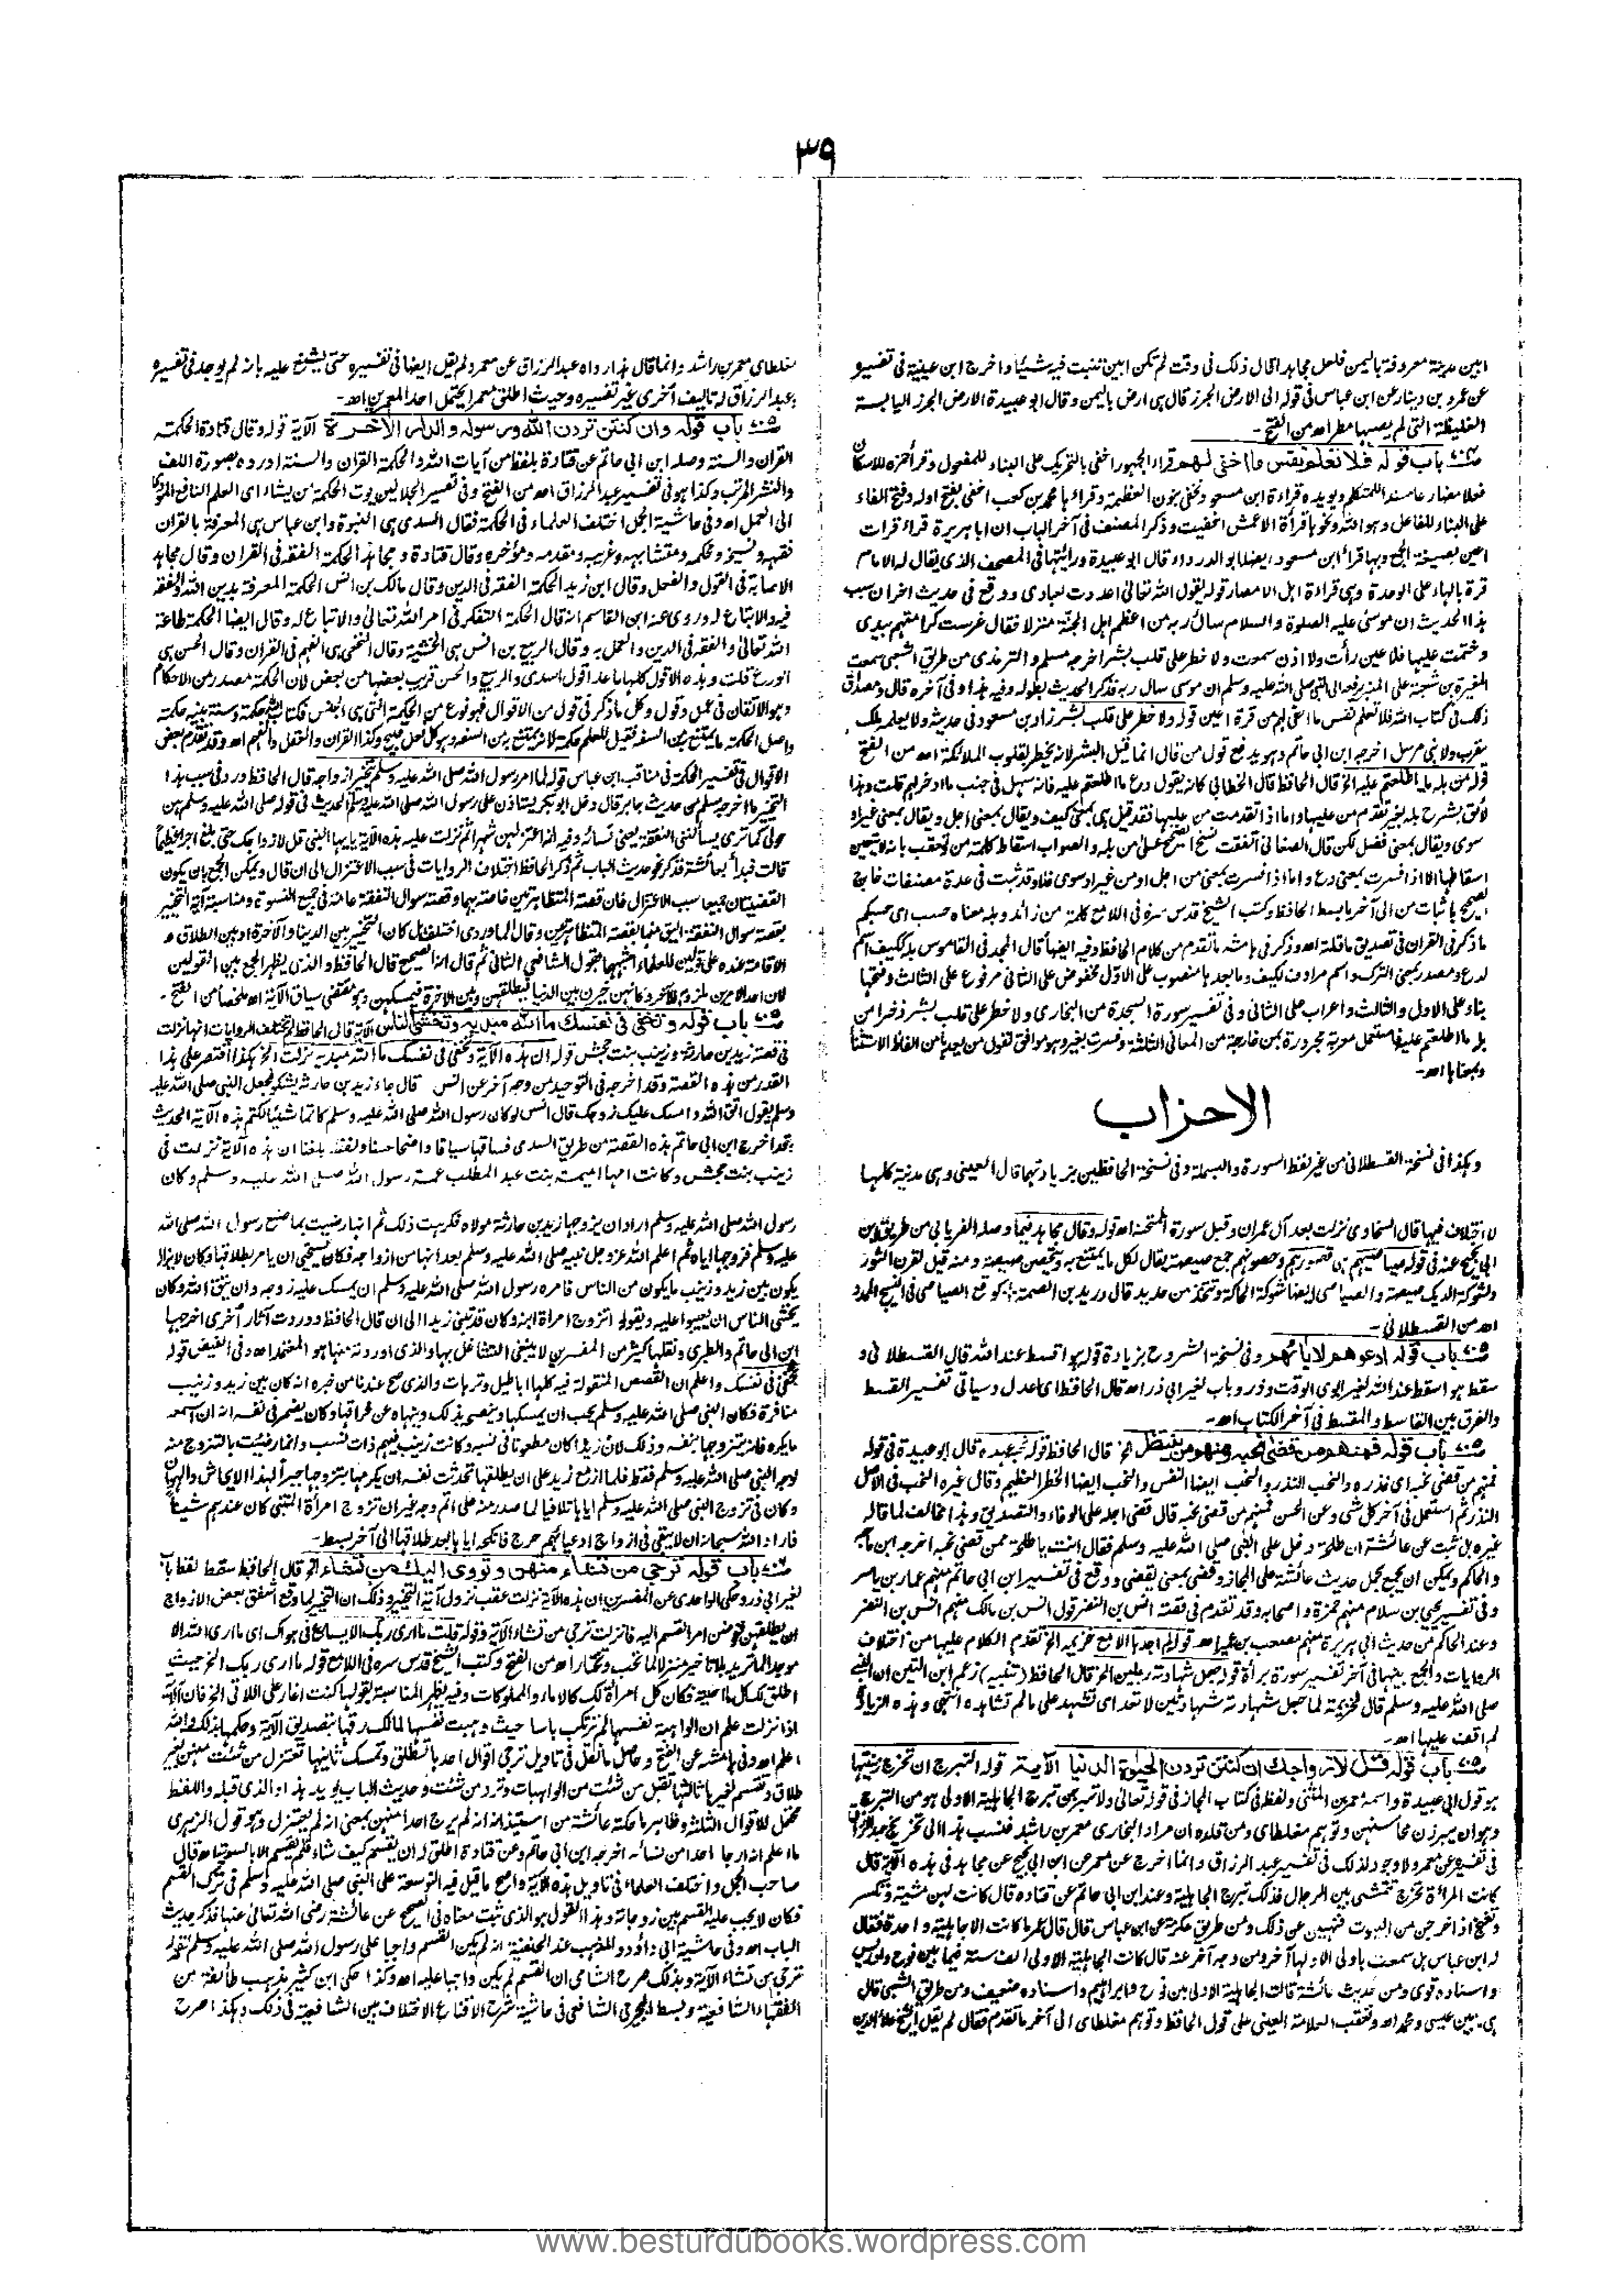 ٣٩
ابين مدينة معروفة باليمن فلعل مجاهدا قال ذلك فى وقت لم تكن ابين تنبت فيه شيئا واخرج ابن عيينة فى تفسيره
عن عمرو بن دينار عن ابن عباس فى قوله الى الارض الجرز قال هى ارض باليمن وقال ابو عبيدة الارض الجرز اليابسة
الغليظة التى لم يصبها مطر اه من الفتح -
باب قوله فلا تعلم نفس ما اخفى لهم قراءة الجمهور اخفى بالتحريك على البناء للمفعول وقرأ حمزة بالاسكان
فعلا مضارعا مسندا للمتكلم ويؤيده قراءة ابن مسعود نخفى بنون العظمة وقراءها محمد بن كعب اخفى بفتح اوله وفتح الفاء
على البناء للفاعل وهو الله ونحوها قرأة الاعمش اخفيت وذكر المصنف فى آخر الباب ان ابا هريرة قراء قرات
اعين بصيغة الجمع وبها قرأ ابن مسعود ايضا وابو الدرداء قال ابو عبيدة ورأيتها فى المصحف الذى يقال له الامام
قرة بالهاء على الوحدة وهى قراءة اهل الامصار قوله يقول الله تعالى اعددت لعبادى ووقع فى حديث اخر ان سبب
هذا الحديث ان موسى عليه الصلوة والسلام سأل ربه من اعظم اهل الجنة منزلا فقال غرست كرامتهم بيدى
وختمت عليها فلا عين رأت ولا اذن سمعت ولا خطر على قلب بشر اخرجه مسلم والترمذى من طريق الشعبى سمعت
المغيرة بن شعبة على المنبر يرفعه الى النبى صلى الله عليه وسلم ان موسى سال ربه فذكر الحديث بطوله وفيه هذا وفى آخره قال ومصداق
ذلك فى كتاب الله فلا تعلم نفس ما اخفى لهم من قرة اعين قوله ولا خطر على قلب بشر زاد ابن مسعود فى حديثه ولا يعلمه ملك
مقرب ولا نبى مرسل اخرجه ابن ابى حاتم وهو يدفع قول من قال انما قيل البشر لانه يخطر بقلوب الملائكة اه من الفتح
قوله من بله ما اطلعتم عليه الخ قال الحافظ قال الخطابى كانه يقول دع ما اطلعتم عليه فانه سهل فى جنب ما ادخر لهم قلت وهذا
لائق بشرح بله بغير تقدم من عليها واما اذا تقدمت من عليها فقد قيل هى بمعنى كيف ويقال بمعنى اجل ويقال بمعنى غير او
سوى ويقال بمعنى فضل لكن قال الصغانى اتفقت نسخ الصحيح على من بله والصواب اسقاط كلمة من وتعقب بانه لا يتعين
اسقاطها الا اذا فسرت بمعنى دع واما اذا فسرت بمعنى من اجل او من غير او سوى فلا وقد ثبت فى عدة مصنفات خارج
الصحيح باثبات من الى آخر ما بسط الحافظ وكتب الشيخ قدس سره فى اللامع كلمة من زائد وبله معناه حسب اى حسبكم
ما ذكر فى القران فى تصديق ما قلته اه وذكر فى هامشه ما تقدم من كلام الحافظ وفيه ايضا قال المجد فى القاموس بله ككيف اسم
لدع ومصدر بمعنى الترك واسم مرادف لكيف وما بعدها منصوب على الاول مخفوض على الثانى مرفوع على الثالث وفتحها
بناء على الاول والثالث واعراب على الثانى وفى تفسير سورة السجدة من البخارى ولا خطر على قلب بشر ذخرا من
بله ما اطلعتم عليه فاستعمل معربة مجرورة بمن خارجة من المعانى الثلثة وفسرت بغير وهو موافق لقول من يعدها من الفاظ الاستثناء
وبمعناها اه -
الاحزاب
وهكذا فى نسخة القسطلانى من غير لفظ السورة والبسملة وفى نسخة الحافظين بزيادتهما قال العينى وهى مدنية كلها
لا اختلاف فيها قال السخاوى نزلت بعد آل عمران وقبل سورة الممتحنة اه قوله وقال مجاهد فيما وصله الفريابى من طريق ابن
ابى نجيح عنه فى قوله صياصيهم هى قصورهم وحصونهم جمع صيصة يقال لكل ما يمتنع به ويتحصن صيصة ومنه قيل لقرن الثور
ولشوكة الديك صيصة والصياصى ايضا شوكة الحاكة وتتخذ من حديد قال دريد بن الصمة :ـ كوقع الصياصى فى النسيج الممدد
اه من القسطلانى -
باب قوله ادعوهم لابائهم وفى نسخة الشروح بزيادة قوله هو اقسط عند الله قال القسطلانى و
سقط هو اقسط عند الله لغير ابوى الوقت وذر وباب لغير ابى ذر اه قال الحافظ اى اعدل وسياتى تفسير القسط
والفرق بين القاسط والمقسط فى آخر الكتاب اه -
باب قوله فمنهم من قضى نحبه ومنهم من ينتظر الخ قال الحافظ قوله نحبه عهده قال ابو عبيدة فى قوله
فمنهم من قضى نحبه اى نذره والنحب النذر والنحب ايضا النفس والنحب ايضا الخطر العظيم وقال غيره النحب فى الاصل
النذر ثم استعمل فى آخر كل شى وعن الحسن فمنهم من قضى نحبه قال قضى اجله على الوفاء والتصديق وهذا مخالف لما قاله
غيره بل ثبت عن عائشة ان طلحة دخل على النبى صلى الله عليه وسلم فقال انت يا طلحة ممن قضى نحبه اخرجه ابن ماجه
والحاكم ويمكن ان يجمع بحمل حديث عائشة على المجاز وقضى بمعنى يقضى ووقع فى تفسير ابن ابى حاتم منهم عمار بن ياسر
وفى تفسير يحيى بن سلام منهم حمزة واصحابه وقد تقدم فى قصة انس بن النضر قول انس بن مالك منهم انس بن النضر
وعند الحاكم من حديث ابى هريرة منهم مصعب بن عمير اه قوله لم اجدها الا مع خزيمة الخ تقدم الكلام عليها من اختلاف
الروايات والجمع بينها فى آخر تفسير سورة برأة قوله جعل شهادته رجلين الخ قال الحافظ (تنبيه) زعم ابن التين ان النبى
صلى الله عليه وسلم قال لخزيمة لما جعل شهادته شهادتين لا تعد اى تشهد على ما لم تشاهده انتهى وهذه الزيادة
لم اقف عليها اه -
باب قوله قل لازواجك ان كنتن تردن الحيوة الدنيا الآية قوله التبرج ان تخرج زينتها
هو قول ابى عبيدة واسمه معمر بن المثنى ولفظه فى كتاب المجاز فى قوله تعالى ولا تبرجن تبرج الجاهلية الاولى هو من التبرج
وهو ان يبرزن محاسنهن وتوهم مغلطاى ومن قلده ان مراد البخارى معمر بن راشد فنسب هذا الى تخريج عبد الرزاق
فى تفسيره عن معمر ولا وجود لذلك فى تفسير عبد الرزاق وانما اخرج عن معمر عن ابن ابى نجيح عن مجاهد فى هذه الآية قال
كانت المرأة تخرج تتمشى بين الرجال فذلك تبرج الجاهلية وعند ابن ابى حاتم عن قتاده قال كانت لهن مشية وتكسر
وتغنج اذا خرجن من البيوت فنهين عن ذلك ومن طريق عكرمة عن ابن عباس قال قال عمر ما كانت الا جاهلية واحدة فقال
له ابن عباس هل سمعت باولى الا ولها آخر ومن وجه آخر عنه قال كانت الجاهلية الاولى الف سنة فيما بين نوح وادريس
واسناده قوى ومن حديث عائشة قالت الجاهلية الاولى بين نوح وابراهيم واسناده ضعيف ومن طريق الشعبى قال
هى بين عيسى ومحمد اه وتعقب العلامة العينى على قول الحافظ وتوهم مغلطاى الى آخر ما تقدم فقال لم يقل الشيخ علاء الدين
مغلطاى معمر بن راشد وانما قال هذا رواه عبد الرزاق عن معمر ولم يقل ايضا فى تفسيره حتى يشنع عليه بانه لم يوجد فى تفسيره
وعبد الرزاق له تاليف اخرى غير تفسيره وحيث اطلق معمرا يحتمل احد المعمرين اه -
باب قوله وان كنتن تردن الله ورسوله والدار الآخرة الآية قوله وقال قتادة الحكمة
القران والسنة وصله ابن ابى حاتم عن قتادة بلفظ من آيات الله والحكمة القران والسنة اورده بصورة اللف
والنشر المرتب وكذا هو فى تفسير عبد الرزاق اه من الفتح وفى تفسير الجلالين يوت الحكمة من يشاء اى العلم النافع المؤدى
الى العمل اه وفى حاشية الجمل اختلف العلماء فى الحكمة فقال السدى هى النبوة وابن عباس هى المعرفة بالقران
فقهه ونسخه ومحكمه ومتشابهه وغريبه ومقدمه ومؤخره وقال قتادة ومجاهد الحكمة الفقه فى القران وقال مجاهد
الاصابة فى القول والفعل وقال ابن زيد الحكمة الفقه فى الدين وقال مالك بن انس الحكمة المعرفة بدين الله والفقه
فيه والاتباع له وروى عنه ابن القاسم انه قال الحكمة التفكر فى امر الله تعالى والاتباع له وقال ايضا الحكمة طاعة
الله تعالى والفقه فى الدين والعمل به وقال الربيع بن انس هى الخشية وقال النخعى هى الفهم فى القران وقال الحسن هى
الورع قلت وهذه الاقول كلها ما عدا قول السدى والربيع والحسن قريب بعضها من بعض لان الحكمة مصدر من الاحكام
وهو الاتقان فى عمل وقول وكل ما ذكر فى قول من الاقوال فهو نوع من الحكمة التى هى الجنس فكتاب الله حكمة وسنة نبيه حكمة
واصل الحكمة ما يمتنع به من السفه فقيل للعلم حكمة لانه يمتنع به من السفه وهو كل فعل قبيح وكذا القران والعقل والفهم اه وقد تقدم بعض
الاقوال فى تفسير الحكمة فى مناقب ابن عباس قوله لما امر رسول الله صلى الله عليه وسلم بتخيير ازواجه قال الحافظ ورد فى سبب هذا
التخيير ما اخرجه مسلم من حديث جابر قال دخل ابو بكر يستاذن على رسول الله صلى الله عليه وسلم الحديث فى قوله صلى الله عليه وسلم هن
حولى كما ترى يسألننى النفقة يعنى نسائه وفيه انه اعتزلهن شهرا ثم نزلت عليه هذه الآية يا يها النبى قل لازواجك حتى بلغ اجرا عظيما
قالت فبدأ بعائشة فذكر نحو حديث الباب ثم ذكر الحافظ اختلاف الروايات فى سبب الاعتزال الى ان قال ويمكن الجمع بان يكون
القضيتان جميعا سبب الاعتزال فان قصة المتظاهرتين خاصة بهما وقصة سوال النفقة عامة فى جميع النسوة ومناسبة آية التخيير
بقصة سوال النفقة اليق منها بقصة المتظاهرتين وقال الماوردى اختلف هل كان التخيير بين الدنيا والآخرة او بين الطلاق و
الاقامة عنده على قولين للعلماء اشبهها بقول الشافعى الثانى ثم قال انه الصحيح قال الحافظ والذى يظهر الجمع بين القولين
لان احد الامرين ملزوم للآخر وكانهن خيرن بين الدنيا فيطلقهن وبين الآخرة فيمسكهن وهو مقتضى سياق الآية اه ملخصا من الفتح -
باب قوله وتخفى فى نفسك ما الله مبديه وتخشى الناس الآية قال الحافظ لم تختلف الروايات انها نزلت
فى قصة زيد بن حارثة وزينب بنت جحش قوله ان هذه الآية وتخفى فى نفسك ما الله مبديه نزلت الخ هكذا اقتصر على هذا
القدر من هذه القصة وقد اخرجه فى التوحيد من وجه آخر عن انس قال جاء زيد بن حارثة يشكو فجعل النبى صلى الله عليه
وسلم يقول اتق الله وامسك عليك زوجك قال انس لو كان رسول الله صلى الله عليه وسلم كاتما شيئا لكتم هذه الآية الحديث
وقد اخرج ابن ابى حاتم هذه القصة من طريق السدى فساقها سياقا واضحا حسنا ولفظه بلغنا ان هذه الآية نزلت فى
زينب بنت جحش وكانت امها اميمة بنت عبد المطلب عمة رسول الله صلى الله عليه وسلم وكان
رسول الله صلى الله عليه وسلم اراد ان يزوجها زيد بن حارثة مولاه فكرهت ذلك ثم انها رضيت بما صنع رسول الله صلى الله
عليه وسلم فزوجها اياه ثم اعلم الله عز وجل نبيه صلى الله عليه وسلم بعد انها من ازواجه فكان يستحيى ان يامر بطلاقها وكان لا يزال
يكون بين زيد وزينب ما يكون من الناس فامره رسول الله صلى الله عليه وسلم ان يمسك عليه زوجه وان يتق الله وكان
يخشى الناس ان يعيبوا عليه ويقولوا تزوج امرأة ابنه وكان قد تبنى زيدا الى ان قال الحافظ ووردت آثار اخرى اخرجها
ابن ابى حاتم والطبرى ونقلها كثير من المفسرين لا ينبغى التشاغل بها والذى اوردته منها هو المعتمد اه وفى الفيض قوله
تخفى فى نفسك واعلم ان القصص المنقولة فيه كلها اباطيل وترهات والذى صح عندنا من خبره انه كان بين زيد وزينب
منافرة فكان النبى صلى الله عليه وسلم يحب ان يمسكها وينصح بذلك وينهاه عن فراقها وكان يضمر فى نفسه انه ان آسمعه
ما يكره فانه يتزوجها بنفسه وذلك لان زيدا كان مطعونا فى نسبه وكانت زينب فيهم ذات نسب وانما رضيت بالتزوج منه
لوجه النبى صلى الله عليه وسلم فقط فلما ازمع زيد على ان يطلقها تحدثت نفسه ان يكرمها بتزوجها جبرا لهذا الايحاش والهوان
وكان فى تزوج النبى صلى الله عليه وسلم اياها تلافيا لما صدر منه على اتم وجه غير ان تزوج امرأة المتبنى كان عندهم شنيعاً
فاراد الله سبحانه ان لا يبقى فى ازواج ادعيائهم حرج فانكحه اياها بعد طلاقها الى آخر ما بسط -
باب قوله ترجى من تشاء منهن وتووى اليك من تشاء الخ قال الحافظ سقط لفظ باب
لغير ابى ذر وحكى الواحدى عن المفسرين ان هذه الآية نزلت عقب نزول آية التخيير وذلك ان التخيير لما وقع اشفق بعض الازواج
ان يطلقهن ففوضن امر القسم اليه فانزلت ترجى من تشاء الآية قوله قلت ما ارى ربك الا يسارع فى هواك اى ما ارى الله الا
موجدا لما تريد بلا تاخير منزلا لما تحب وتختار اه من الفتح وكتب الشيخ قدس سره فى اللامع قوله ما ارى ربك الخ حيث
اطلق لك كل ما احببته فكان كل امرأة لك كالاماء والمملوكات وفيه يظهر المناسبة بقولها كنت اغار على اللاتى الخ فان الآية
اذا نزلت علم ان الواهبة نفسها لم ترتكب باسا حيث وهبت نفسها لمالك رقبها بتصديق الآية وحكمها بذلك والله
اعلم اه وفى هامشه عن الفتح وحاصل ما نقل فى تاويل ترجى اقوال احدها تطلق وتمسك ثانيها تعتزل من شئت منهن بغير
طلاق وتقسم لغيرها ثالثها تقبل من شئت من الواهبات وترد من شئت وحديث الباب يؤيد هذا والذى قبله واللفظ
محتمل للاقوال الثلثة وظاهر ما حكته عائشة من استيذانه انه لم يرج احدا منهن بمعنى انه لم يعتزل وهو قول الزهرى
ما اعلم انه ارجا احدا من نسائه اخرجه ابن ابى حاتم وعن قتادة اطلق له ان يقسم كيف شاء فلم يقسم الا بالسوية اه قال
صاحب الجمل واختلف العلماء فى تاويل هذه الآية واصح ما قيل فيه التوسعة على النبى صلى الله عليه وسلم فى ترك القسم
فكان لا يجب عليه القسم بين زوجاته وهذا القول هو الذى ثبت معناه فى الصحيح عن عائشة رضى الله تعالى عنها فذكر حديث
الباب اه وفى حاشية ابى داؤد والمذهب عند الحنفية انه لم يكن القسم واجبا على رسول الله صلى الله عليه وسلم لقوله
ترجى من تشاء الآية وبذلك صرح الشامى ان القسم لم يكن واجبا عليه اه وكذا حكى ابن كثير مذهب طائفة من
الفقهاء الشافعية وبسط البجيرمى الشافعى فى حاشية شرح الاقناع الاختلاف بين الشافعية فى ذلك وهكذا صرح
www.besturdubooks.wordpress.com